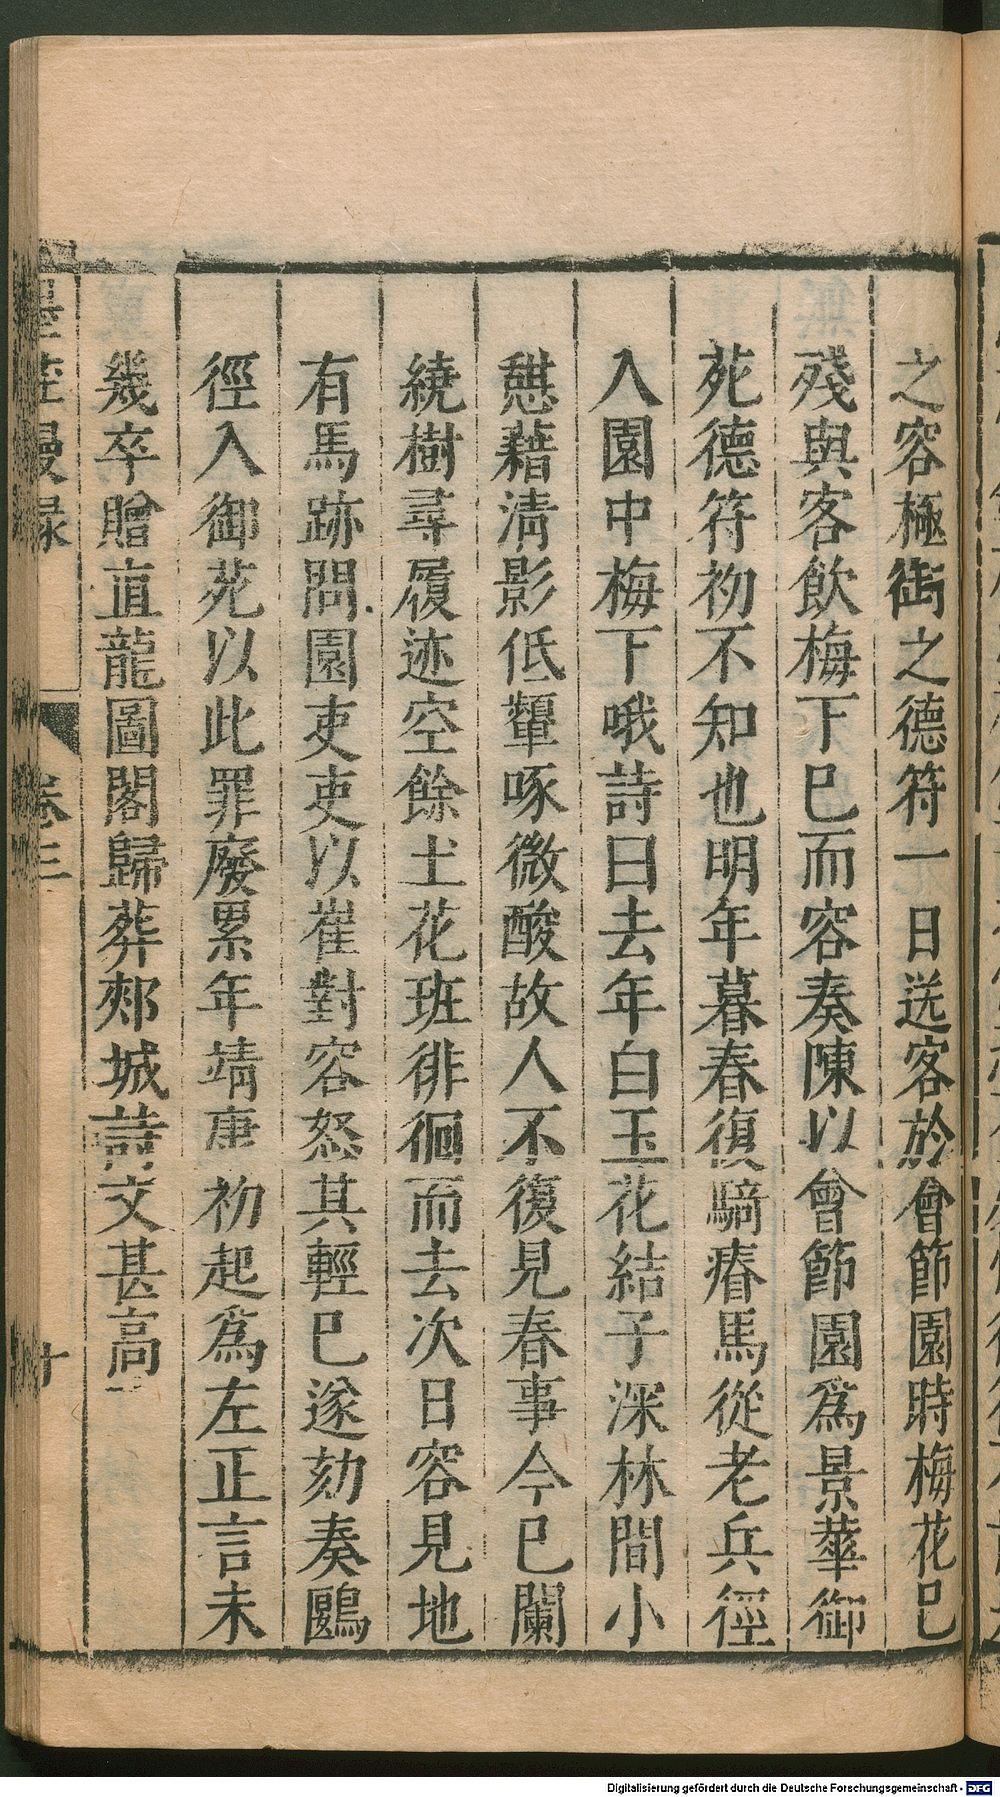 之容極銜之德符一日送客於會節園時梅花已
殘與客飲梅下巳而容奏陳以會節園爲景華御
苑德符初不知也明年暮春復騎瘠馬從老兵徑
入園中梅下哦詩曰去年白玉花結子深林間小
憇藉清影低顰啄微酸故人不復見春事今已闌
繞樹尋履迹空餘土花班徘徊而去次日容見地
有馬跡問園吏吏以崔對容怒其輕巳遂劾奏鷗
徑入御苑以此罪廢累年靖康初起爲左正言未
幾卒贈直龍圖閣歸葬郟城詩文甚高
墨莊漫录
卷三
十
Digitalisierung gefördert durch die Deutsche Forschungsgemeinschaft - DFG